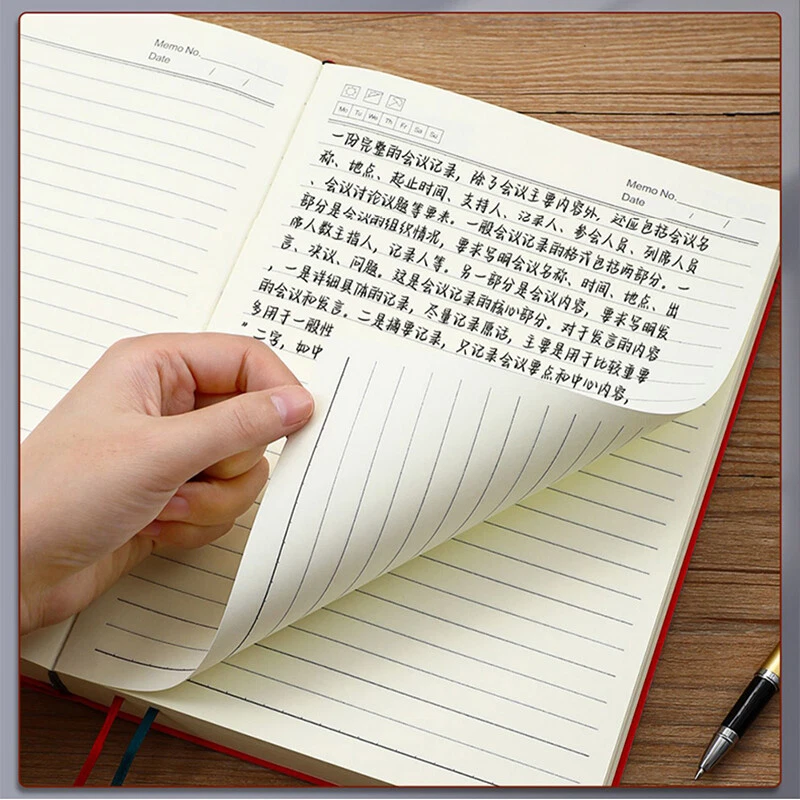 Memo No.
Date / /
Mo Tu We Th Fr Sa Su
Memo No.
Date / /
一份完整的会议记录，除了会议主要内容外，还应包括会议名
称、地点、起止时间、支持人、记录人、参会人员、列席人员
、会议讨论议题等要来。一般会议记录的格式包括两部分。一
部分是会议的组织情况，要求写明会议名称、时间、地点、出
席人数主指人，记录人等。另一部分是会议内容，要求写明发
言、决议、问题。这是会议记录的核心部分。对于发言的内容
，一是详细具体的记录，尽量记录原话，主要是用于比较重要
的会议和发言。二是摘要记录，只记录会议要点和中心内容，
多用于一般性
”二字，如中